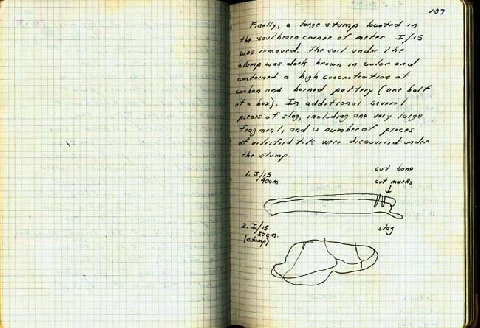 137
Finally, a large stump located in
the southeast corner of meter I/15
was removed. The soil under the
stump was dark brown in color and
contained a high concentration of
carbon and burned pottery (one half
of a box). In additional several
pieces of slag, including one very large
fragment, and a number of pieces
of vitrified brick were discovered under
the stump.
1. I/15
40cm
cut bone
cut marks
2. I/15
50cm
(stump)
slag